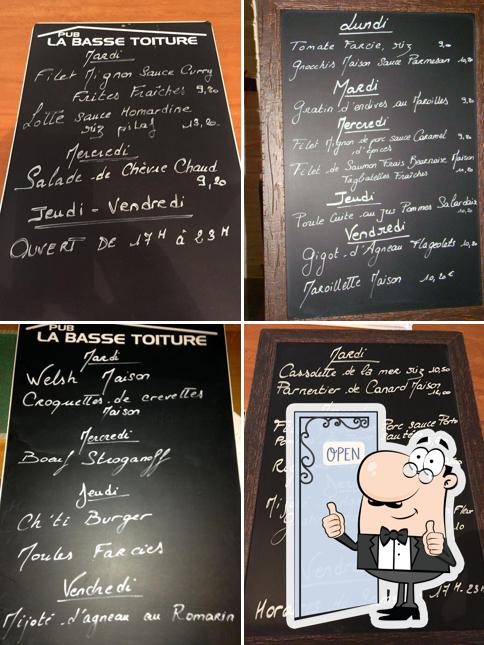 PUB
LA BASSE TOITURE
Mardi
Filet Mignon Sauce Curry
Frites Fraîches 9,20
Lotte Sauce Homardine
riz pilaf 13,20.
Mercredi
Salade de Chèvre Chaud
9,20
Jeudi - Vendredi
OUVERT DE 17H à 23H
Lundi
Tomate Farcie, riz 9,20
Gnocchis Maison Sauce Parmesan 10,20
Mardi
Gratin d'endives au Maroilles 9,20
Mercredi
Filet Mignon de porc sauce Caramel 9,20
d'épices
Filet de Saumon Frais Bearnaise Maison
Tagliatelles Fraîches
Jeudi
Poule Cuite au jus Pommes Salardaise
10,20
Vendredi
Gigot d'Agneau Flageolets 10,20
Maroillette Maison 10,20€
PUB
LA BASSE TOITURE
Mardi
Welsh Maison
Croquettes de crevettes
Maison
Mercredi
Boeuf Stroganoff
Jeudi
Ch'ti Burger
Moules Farcies
Vendredi
Mijoté d'agneau au Romarin
Mardi
Cassolette de la mer riz 10,50
Parmentier de Canard Maison
Porc sauce Porto
OPEN
17H-23H